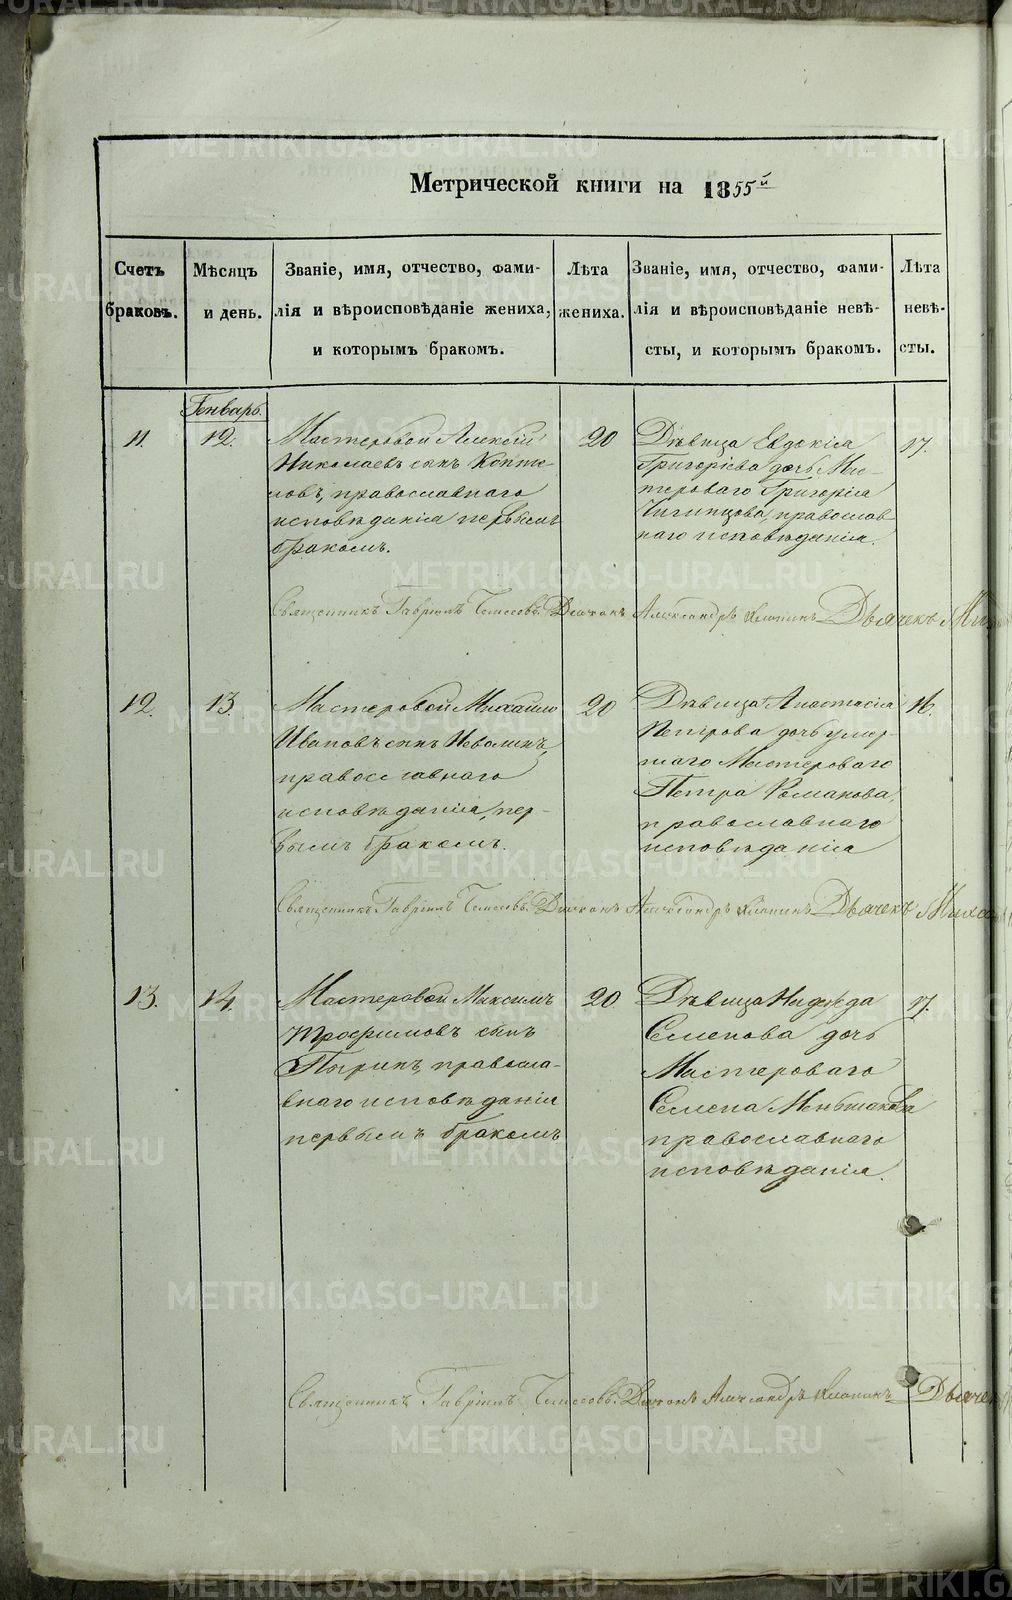 Метрической книги на 1855й
Счетъ браковъ.
Мѣсяцъ и день.
Званіе, имя, отчество, фами-
лія и вѣроисповѣданіе жениха,
и которымъ бракомъ.
Лѣта жениха.
Званіе, имя, отчество, фами-
лія и вѣроисповѣданіе невѣ-
сты, и которымъ бракомъ.
Лѣта невѣ-
сты.
Генварь.
11. 12.
Мастеровой Алексѣй
Николаевъ сынъ Копте-
ловъ, православнаго
исповѣданія первымъ
бракомъ.
20
Дѣвица Евдокія
Григоріева дочь Ма-
стероваго Григорія
православ-
наго исповѣданія.
17.
Священникъ Гавріилъ Діаконъ Александръ Дьячекъ
12. 13.
Мастеровой Михайло
Ивановъ сынъ Неволинъ,
православнаго
исповѣданія, пер-
вымъ бракомъ.
20
Дѣвица Анастасія
Петрова дочь умер-
шаго Мастероваго
Петра Романова,
православнаго
исповѣданія
16.
Священникъ Гавріилъ Діаконъ Александръ Дьячекъ
13. 14.
Мастеровой Максимъ
Трофимовъ сынъ
православ-
наго исповѣданія
первымъ бракомъ
20.
Дѣвица Надежда
Семенова дочь
Мастероваго
Семена Меньшакова
православнаго
исповѣданія.
17.
Священникъ Гавріилъ Діаконъ Александръ
METRIKI.GASO-URAL.RU